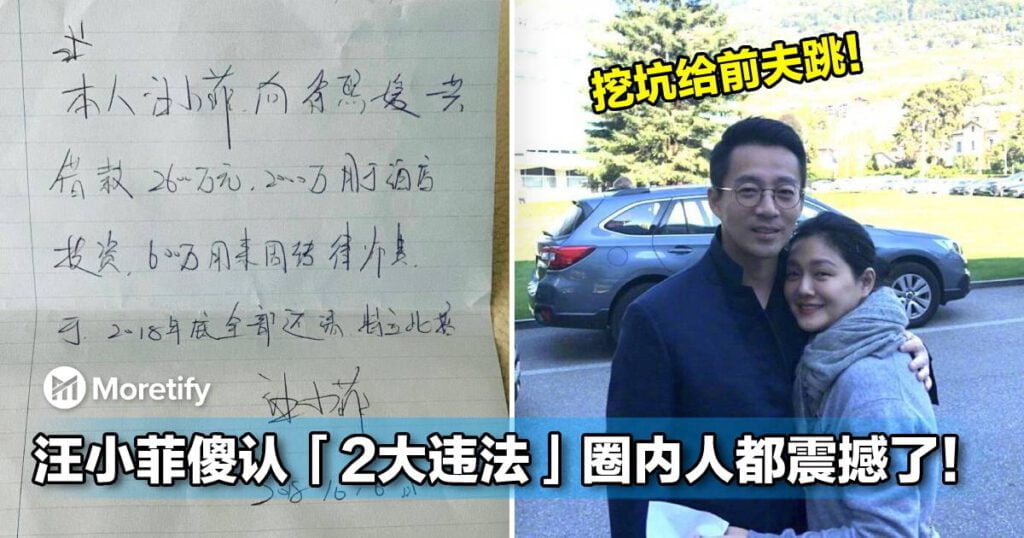 本人汪小菲向徐熙媛共
借款2600万元,2000万用于酒店
投资,600万用来周转律师费.
于2018年底全部还清.特立此据
汪小菲
挖坑给前夫跳!
Moretify
汪小菲傻认「2大违法」圈内人都震撼了!